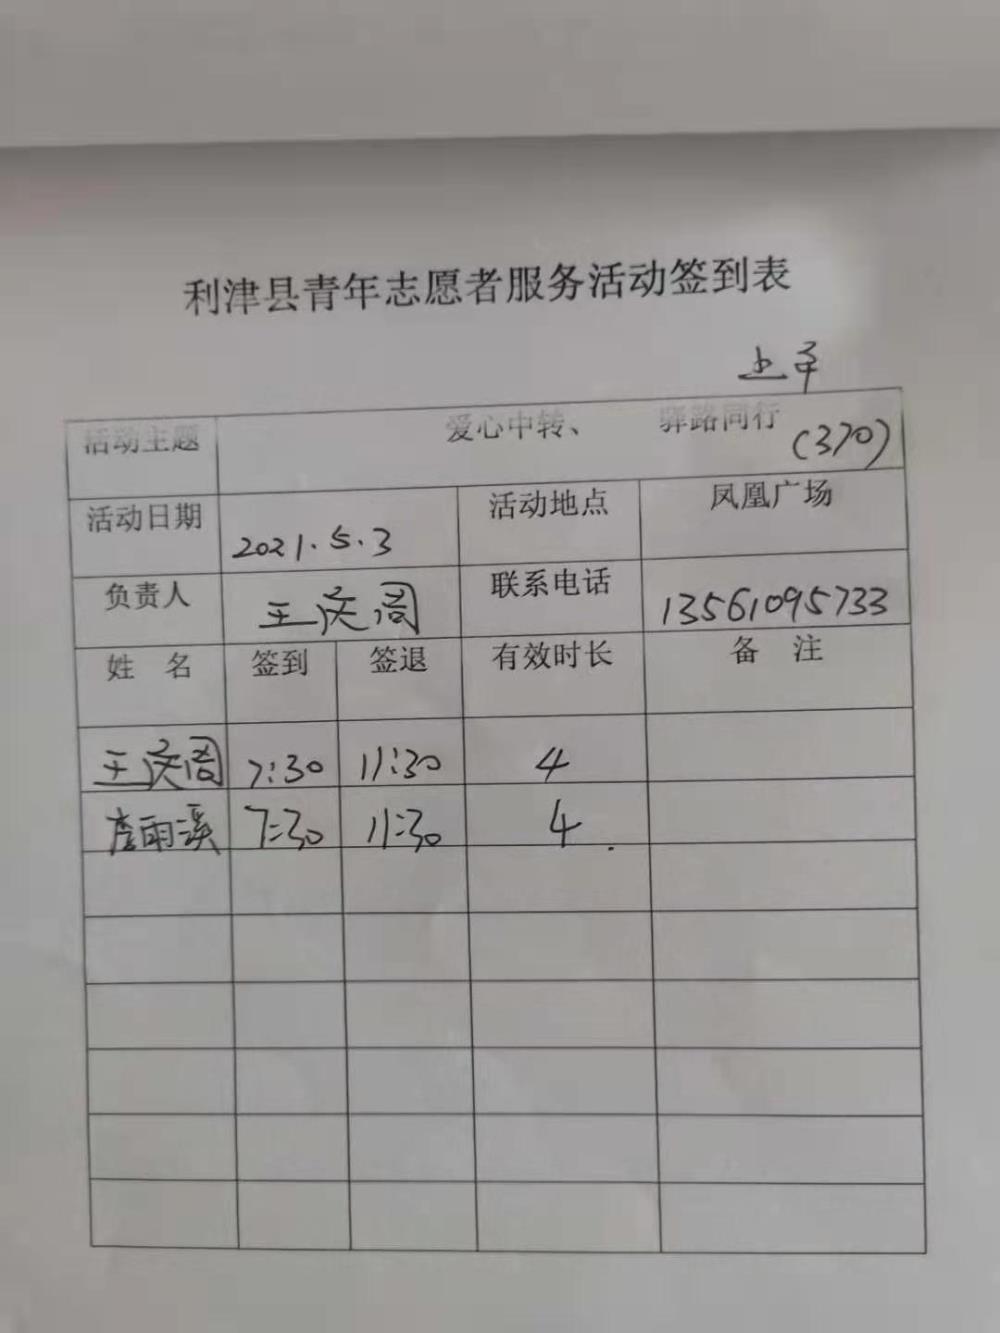 利津县青年志愿者服务活动签到表
上午
活动主题 爱心中转、 驿路同行 (370)
活动日期 2021.5.3 活动地点 凤凰广场
负责人 王文阁 联系电话 13561095733
姓 名 签到 签退 有效时长 备 注
王文阁 7:30 11:30 4
雨溪 7:30 11:30 4